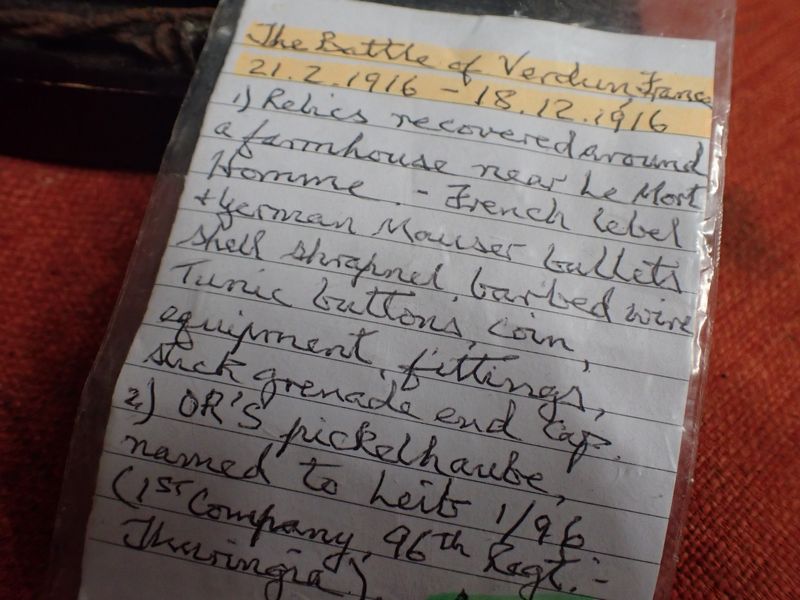 The Battle of Verdun, France
21.2.1916 - 18.12.1916
1) Relics recovered around
a farmhouse near Le Mort
Homme. - French Lebel
+ German Mauser bullets
shell shrapnel, barbed wire
Tunic buttons, coin,
equipment, fittings,
stick grenade end cap.
2) OR'S pickelhaube,
named to Leib 1/96
(1st Company, 96th Regt:-
Thuringia).